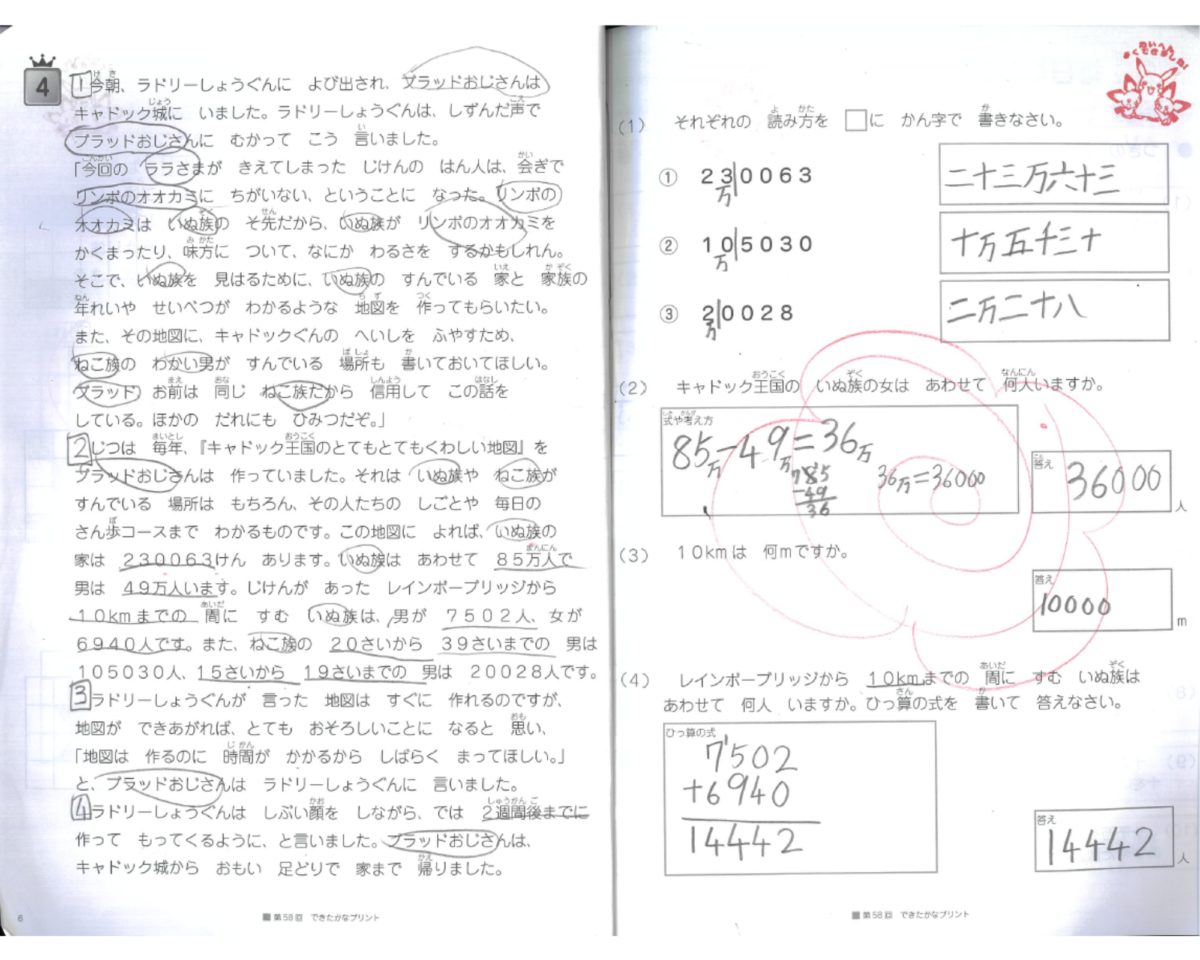 4
1 今朝、ラドリーしょうぐんに よび出され、ブラッドおじさんは
キャドック城に いました。ラドリーしょうぐんは、しずんだ声で
ブラッドおじさんに むかって こう 言いました。
「今回の ララさまが きえてしまった じけんの はん人は、会ぎで
リンボのオオカミに ちがいない、ということに なった。リンボの
オオカミは いぬ族の そ先だから、いぬ族が リンボのオオカミを
かくまったり、味方に ついて、なにか わるさを するかもしれん。
そこで、いぬ族を 見はるために、いぬ族の すんでいる 家と 家族の
年れいや せいべつが わかるような 地図を 作ってもらいたい。
また、その地図に、キャドックぐんの へいしを ふやすため、
ねこ族の わかい男が すんでいる 場所も 書いておいてほしい。
ブラッド、お前は 同じ ねこ族だから 信用して この話を
している。ほかの だれにも ひみつだぞ。」
2 じつは 毎年、『キャドック王国のとてもとてもくわしい地図』を
ブラッドおじさんは 作っていました。それは いぬ族や ねこ族が
すんでいる 場所は もちろん、その人たちの しごとや 毎日の
さん歩コースまで わかるものです。この地図に よれば、いぬ族の
家は 230063けん あります。いぬ族は あわせて 85万人で
男は 49万人います。じけんが あった レインボーブリッジから
10kmまでの 間に すむ いぬ族は、男が 7502人、女が
6940人です。また、ねこ族の 20さいから 39さいまでの 男は
105030人、15さいから 19さいまでの 男は 20028人です。
3 ラドリーしょうぐんが 言った 地図は すぐに 作れるのですが、
地図が できあがれば、とても おそろしいことに なると 思い、
「地図は 作るのに 時間が かかるから しばらく まってほしい。」
と、ブラッドおじさんは ラドリーしょうぐんに 言いました。
4 ラドリーしょうぐんは しぶい顔を しながら、では 2週間後までに
作って もってくるように、と言いました。ブラッドおじさんは、
キャドック城から おもい 足どりで 家まで 帰りました。
6
■第58回 できたかなプリント
(1) それぞれの 読み方を □に かん字で 書きなさい。
① 230063 二十三万六十三
万
② 105030 十万五千三十
万
③ 20028 二万二十八
万
(2) キャドック王国の いぬ族の女は あわせて 何人いますか。
式や考え方
85万-49万=36万
36万=36000
85
-49
36
答え 36000 人
(3) 10kmは 何mですか。
答え
10000 m
(4) レインボーブリッジから 10kmまでの 間に すむ いぬ族は
あわせて 何人 いますか。ひっ算の式を 書いて 答えなさい。
ひっ算の式
7502
+6940
14442
答え
14442 人
■第58回 できたかなプリント